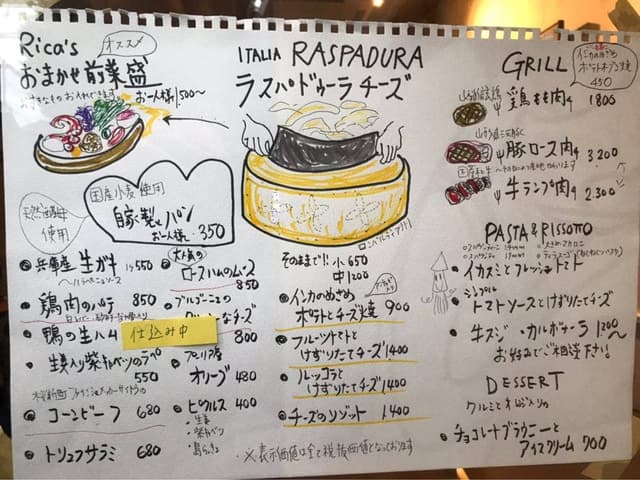 Rica's
オススメ
おまかせ前菜盛
お一人様500〜
国産小麦使用
自家製パン
お一人様 350
天然酵母
使用
兵庫産 生ガキ 1ヶ550
鶏肉のパテ 850
鴨の生ハム
仕込み中
550
コーンビーフ 680
トリュフサラミ 680
大人気の
ロースハムのムース
850
ブルゴーニュの
なチーズ
800
オリーブ 480
ピクルス 400
・生姜
・紫キャベツ
・島らっきょ
ITALIA RASPADURA
ラスパドゥーラチーズ
そのまま!! 小 650
中 1200
インカのめざめ
ポテトとチーズ焼 900
フルーツトマトと
けずりたてチーズ 1400
ルッコラと
けずりたてチーズ 1400
チーズのリゾット 1400
※表示価格は全て税抜価格となっております
GRILL
インカのめざめ
ポテトオーブン焼
450
鶏もも肉 1800
豚ロース肉 3200
牛ランプ肉 2,300
PASTA & RISOTTO
イカスミとフレッシュトマト
シンプル
トマトソースとけずりたてチーズ
牛スジ・カルボナーラ 1200〜
お好みでご相談下さい!
DESSERT
クルミとオレンジ入りの
チョコレートブラウニーと
アイスクリーム 700